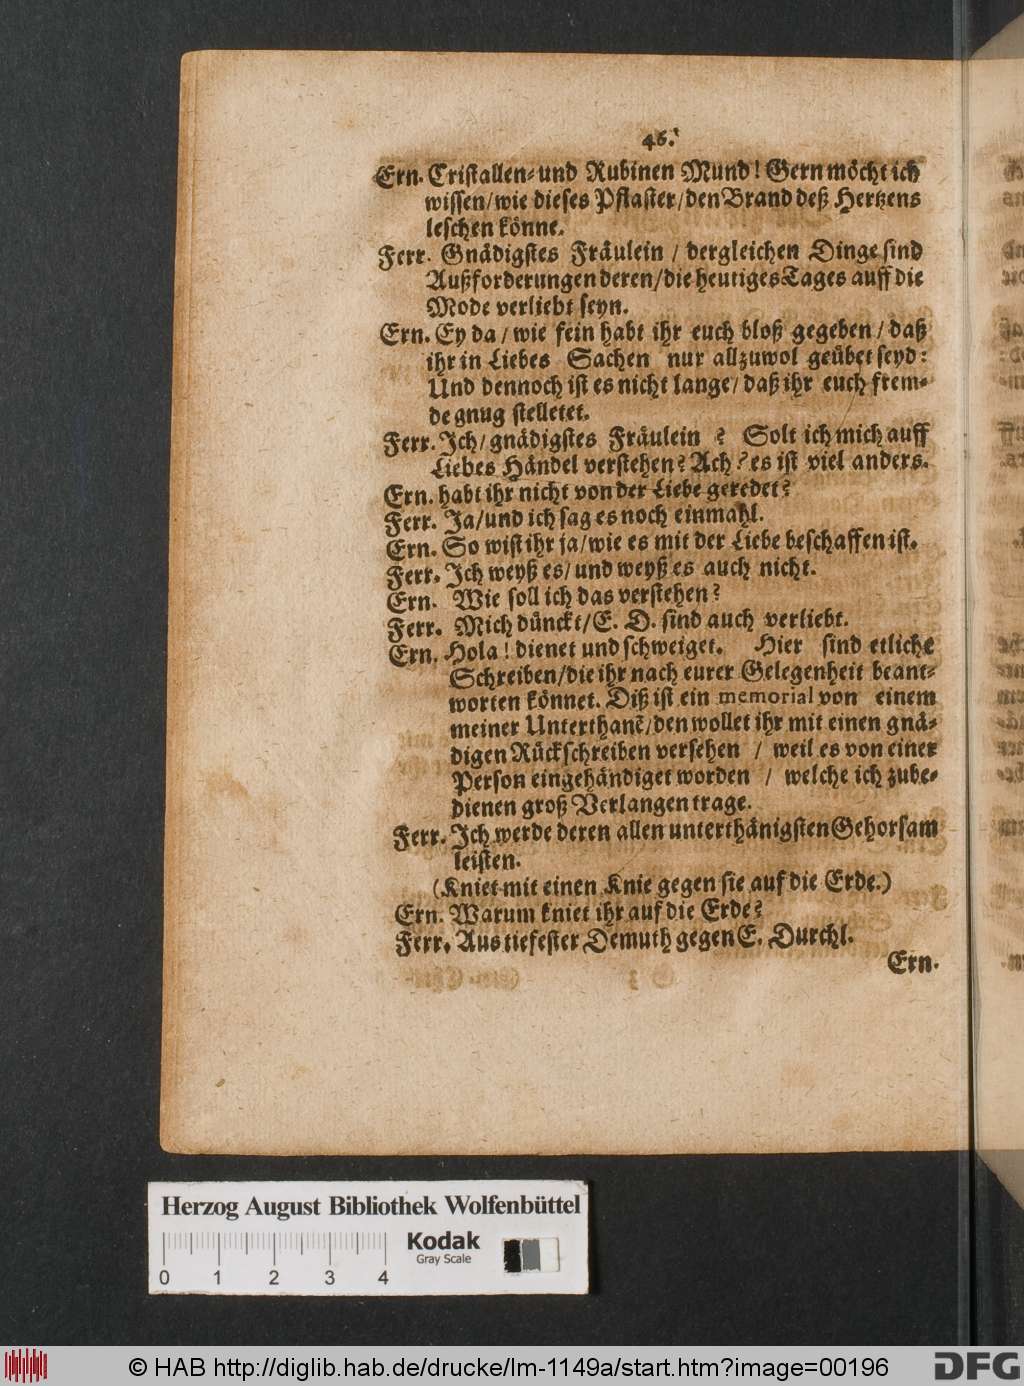 46.
Ern. Cristallen- und Rubinen Mund! Gern möcht ich
wissen/wie dieses Pflaster/den Brand deß Hertzens
leschen könne.
Ferr. Gnädigstes Fräulein / dergleichen Dinge sind
Außforderungen deren/die heutiges Tages auff die
Mode verliebt seyn.
Ern. Ey da / wie fein habt ihr euch bloß gegeben / daß
ihr in Liebes Sachen nur allzuwol geübet seyd:
Und dennoch ist es nicht lange/ daß ihr euch frem-
de gnug stelletet.
Ferr. Ich/ gnädigstes Fräulein ? Solt ich mich auff
Liebes Händel verstehen? Ach? es ist viel anders.
Ern. habt ihr nicht von der Liebe geredet?
Ferr. Ja/und ich sag es noch einmahl.
Ern. So wist ihr ja/wie es mit der Liebe beschaffen ist.
Ferr. Ich weyß es/ und weyß es auch nicht.
Ern. Wie soll ich das verstehen?
Ferr. Mich dünckt/E. D. sind auch verliebt.
Ern. Hola! dienet und schweiget. Hier sind etliche
Schreiben/die ihr nach eurer Gelegenheit beant-
worten könnet. Diß ist ein memorial von einem
meiner Unterthanẽ/den wollet ihr mit einen gnä-
digen Rückschreiben versehen / weil es von einer
Person eingehändiget worden / welche ich zube-
dienen groß Verlangen trage.
Ferr. Ich werde deren allen unterthänigsten Gehorsam
leisten.
(Kniet mit einen Knie gegen sie auf die Erde.)
Ern. Warum kniet ihr auf die Erde?
Ferr. Aus tiefester Demuth gegen E. Durchl.
Ern.
Herzog August Bibliothek Wolfenbüttel
Kodak
Gray Scale
0 1 2 3 4
© HAB http://diglib.hab.de/drucke/lm-1149a/start.htm?image=00196
DFG